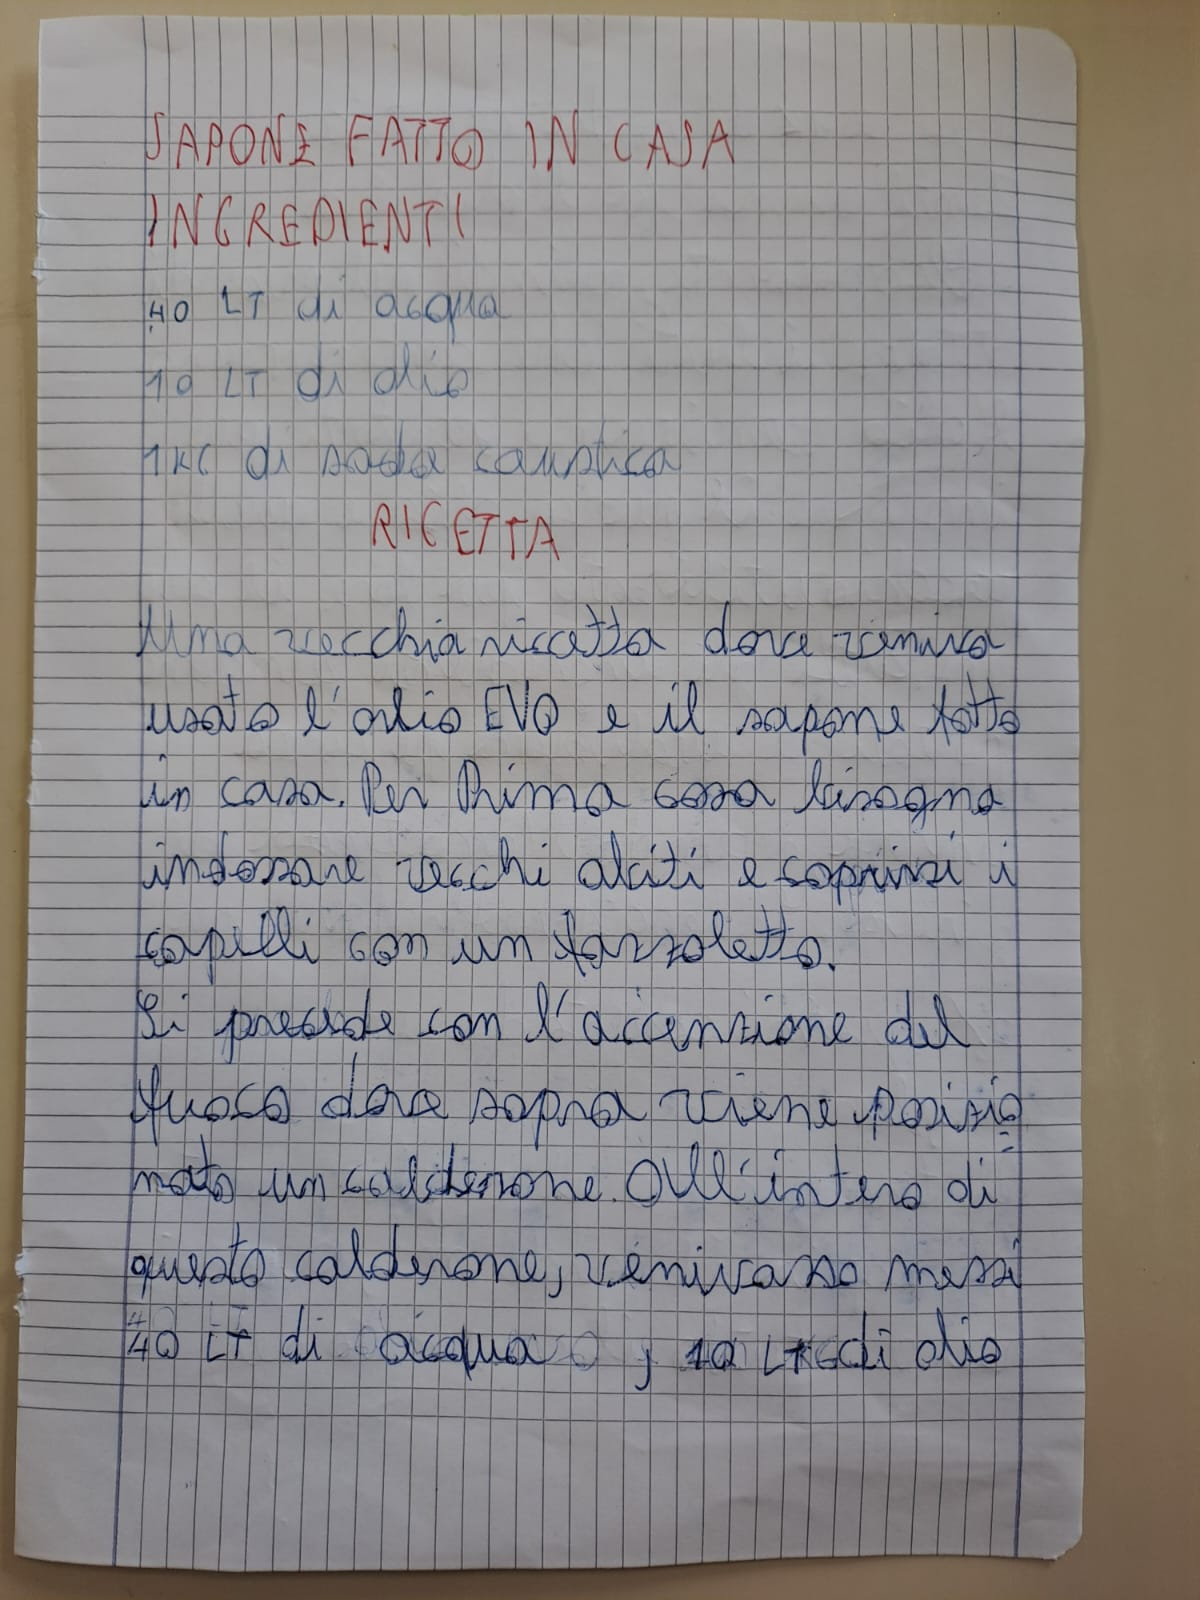 SAPONE FATTO IN CASA
INGREDIENTI
40 LT di acqua
10 LT di olio
1KG di soda caustica
RICETTA
Una vecchia riccetta dove veniva
usato l'olio EVO e il sapone fatto
in casa. Per Prima cosa bisogna
indossare vecchi abiti e coprirsi i
capelli con un fazzoletto.
Si procede con l'accenzione del
fuoco dove sopra viene posizio
nato un calderone. All'intero di
questo calderone, venivano messi
40 LT di acqua, 10 LT di olio